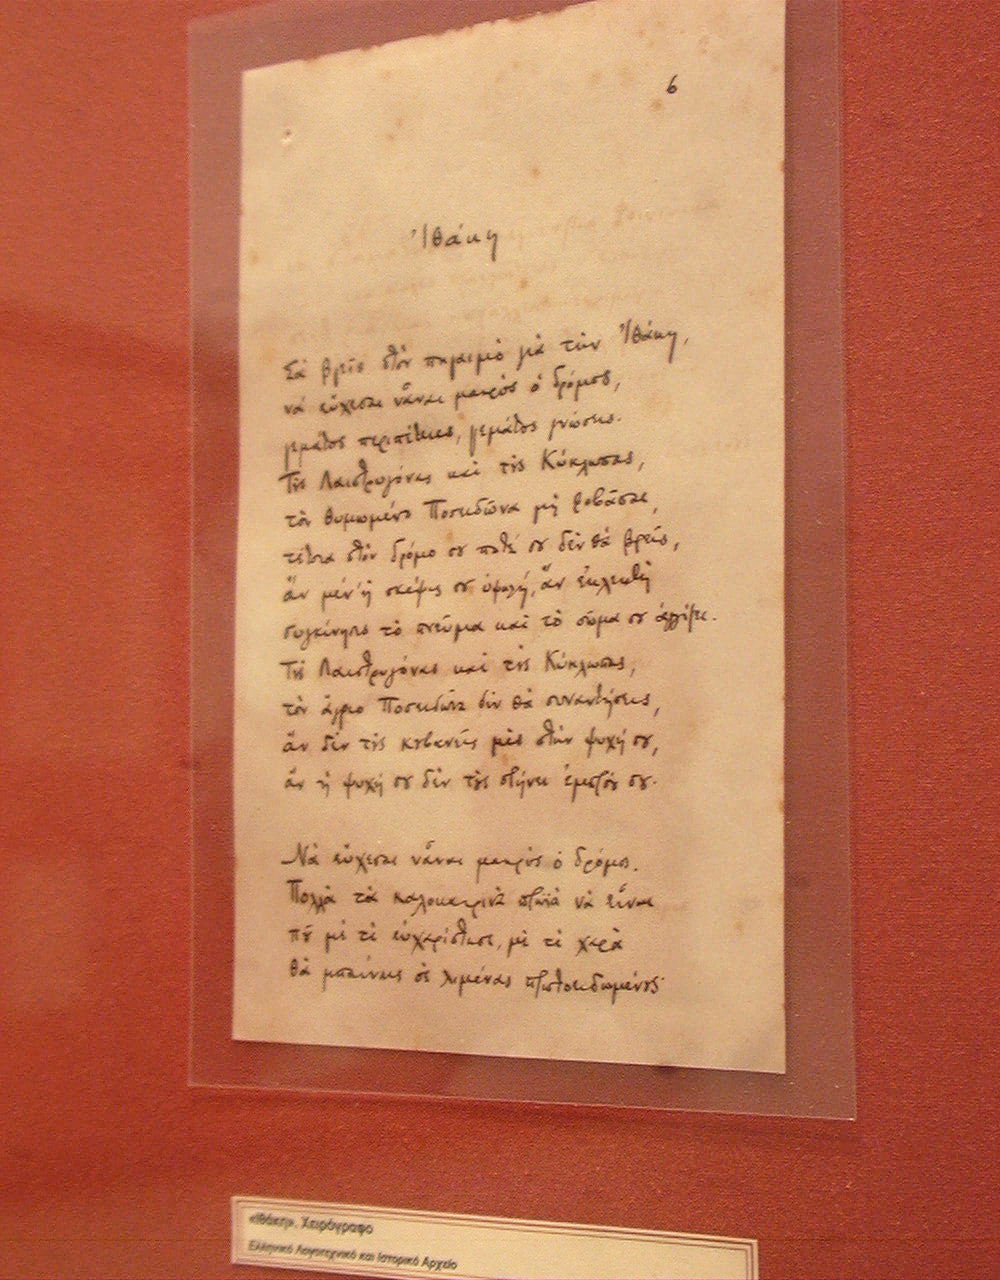 6
Ἰθάκη
Σὰ βγεῖς στὸν πηγαιμὸ γιὰ τὴν Ἰθάκη,
νὰ εὔχεσαι νἆναι μακρὺς ὁ δρόμος,
γεμάτος περιπέτειες, γεμάτος γνώσεις.
Τοὺς Λαιστρυγόνας καὶ τοὺς Κύκλωπας,
τὸν θυμωμένο Ποσειδῶνα μὴ φοβᾶσαι,
τέτοια στὸν δρόμο σου ποτέ σου δὲν θὰ βρεῖς,
ἂν μέν' ἡ σκέψις σου ὑψηλή, ἂν ἐκλεκτὴ
συγκίνησις τὸ πνεῦμα καὶ τὸ σῶμα σου ἀγγίζει.
Τοὺς Λαιστρυγόνας καὶ τοὺς Κύκλωπας,
τὸν ἄγριο Ποσειδῶνα δὲν θὰ συναντήσεις,
ἂν δὲν τοὺς κουβανεῖς μὲς στὴν ψυχή σου,
ἂν ἡ ψυχή σου δὲν τοὺς στήνει ἐμπρός σου.
Νὰ εὔχεσαι νἆναι μακρὺς ὁ δρόμος.
Πολλὰ τὰ καλοκαιρινὰ πρωϊὰ νὰ εἶναι
ποῦ μὲ τί εὐχαρίστησι, μὲ τί χαρὰ
θὰ μπαίνεις σὲ λιμένας πρωτοειδωμένους·
«Ιθάκη». Χειρόγραφο
Ελληνικό Λογοτεχνικό και Ιστορικό Αρχείο